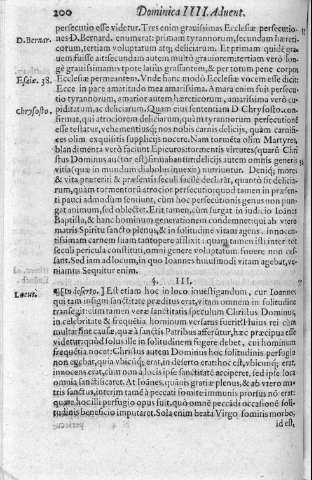 200
Dominica IIII. Advent.
persecutio esse videtur. Tres enim gravissimas Ecclesiæ persecutio-
D. Bernar.
nes D. Bernard. enumerat, primam tyrannorum, secundam hæreti-
corum, tertiam voluptatum atq; deliciarum. Et primam quidē gra-
vem fuisse ait: secundam autem multò graviorem: tertiam verò lon-
gè gravissimam: vtpote latius grassantem, & per totum penè corpus
Esaiæ. 38.
Ecclesiæ permeantem. Vnde hanc modò Ecclesiæ vocem esse dicit:
Ecce in pace amaritudo mea amarissima. Amara enim fuit persecu-
tio tyrannorum, amarior autem hæreticorum, amarissima verò cu-
Chrysosto.
piditatum, ac deliciarum. Quam eius sententiam D Chrysosto. con-
firmat, qui atrociorem deliciarum, quàm tyrannorum persecutionē
esse testatur, vehementiusq; nos nobis carnis delicijs, quàm carnifi-
ces olim exquisitis supplicijs nocere. Nam tormēta olim Martyres,
blandimenta verò faciunt Epicuros
stus Dominus auctor est) firmabantur: delicijs autem omnis generis
vitia (quæ in mundum diabolus invexit) nutriuntur. Deniq; mores
& vita præteriti, & præsentis seculi facile declarāt, quantò sit delicia-
rum, quàm tormentorū atrocior persecutio: quod tamen in præsen-
ti pauci admodum sentiunt, cùm hoc persecutionis genus non pun-
gat animum, sed oblectet. Erit tamen, cùm surgat in iudicio Ioannes
Baptista, & hanc hominum generationem condemnet: qui ab vtero
matris Spiritu sancto plenus, & in solitudine vitam agens, innocen-
tissimam carnem suam tantopere afflixit: quam tamen isti inter tot
seculi pericula constituti, omni genere voluptatum fovere non ces-
sant. Sed iam ad locum, in quo Ioannes huiusmodi vitam agebat, ve-
niamus. Sequitur enim.
§. III.
Locus.
In deserto. ] Est etiam hoc in loco investigandum, cur Ioannes
qui tam insigni sanctitate præditus erat, vitam omnem in solitudine
transegit: cum tamen veræ sanctitatis speculum Christus Dominus,
in celebritate & frequētia hominum versatus fuerit? Huius rei cùm
multæ sint causæ, quæ à sanctis Patribus afferūtur, hæc præcipua esse
videtur: quòd solus ille in solitudinem fugere debet, cui hominum
frequētia nocet: Christus autem Dominus hoc solitudinis perfugio
non egebat, quia vbicūq; erat, in deserto erat: hoc est, vbicumq; erat,
innocens erat, cùm non à locis ipse sanctitatē acciperet, sed ipse loca
omnia sanctificaret. At Ioānes, quāvis gratiæ plenus, & ab vtero ma-
tris sanctus, interim tamē à peccati fomite immunis prorsus nō erat:
quare hoc illi perfugio opus fuit, quò omnē peccādi occasionē soli-
tudinis beneficio imputaret. Sola enim beata Virgo fomitis morbo,
id est,